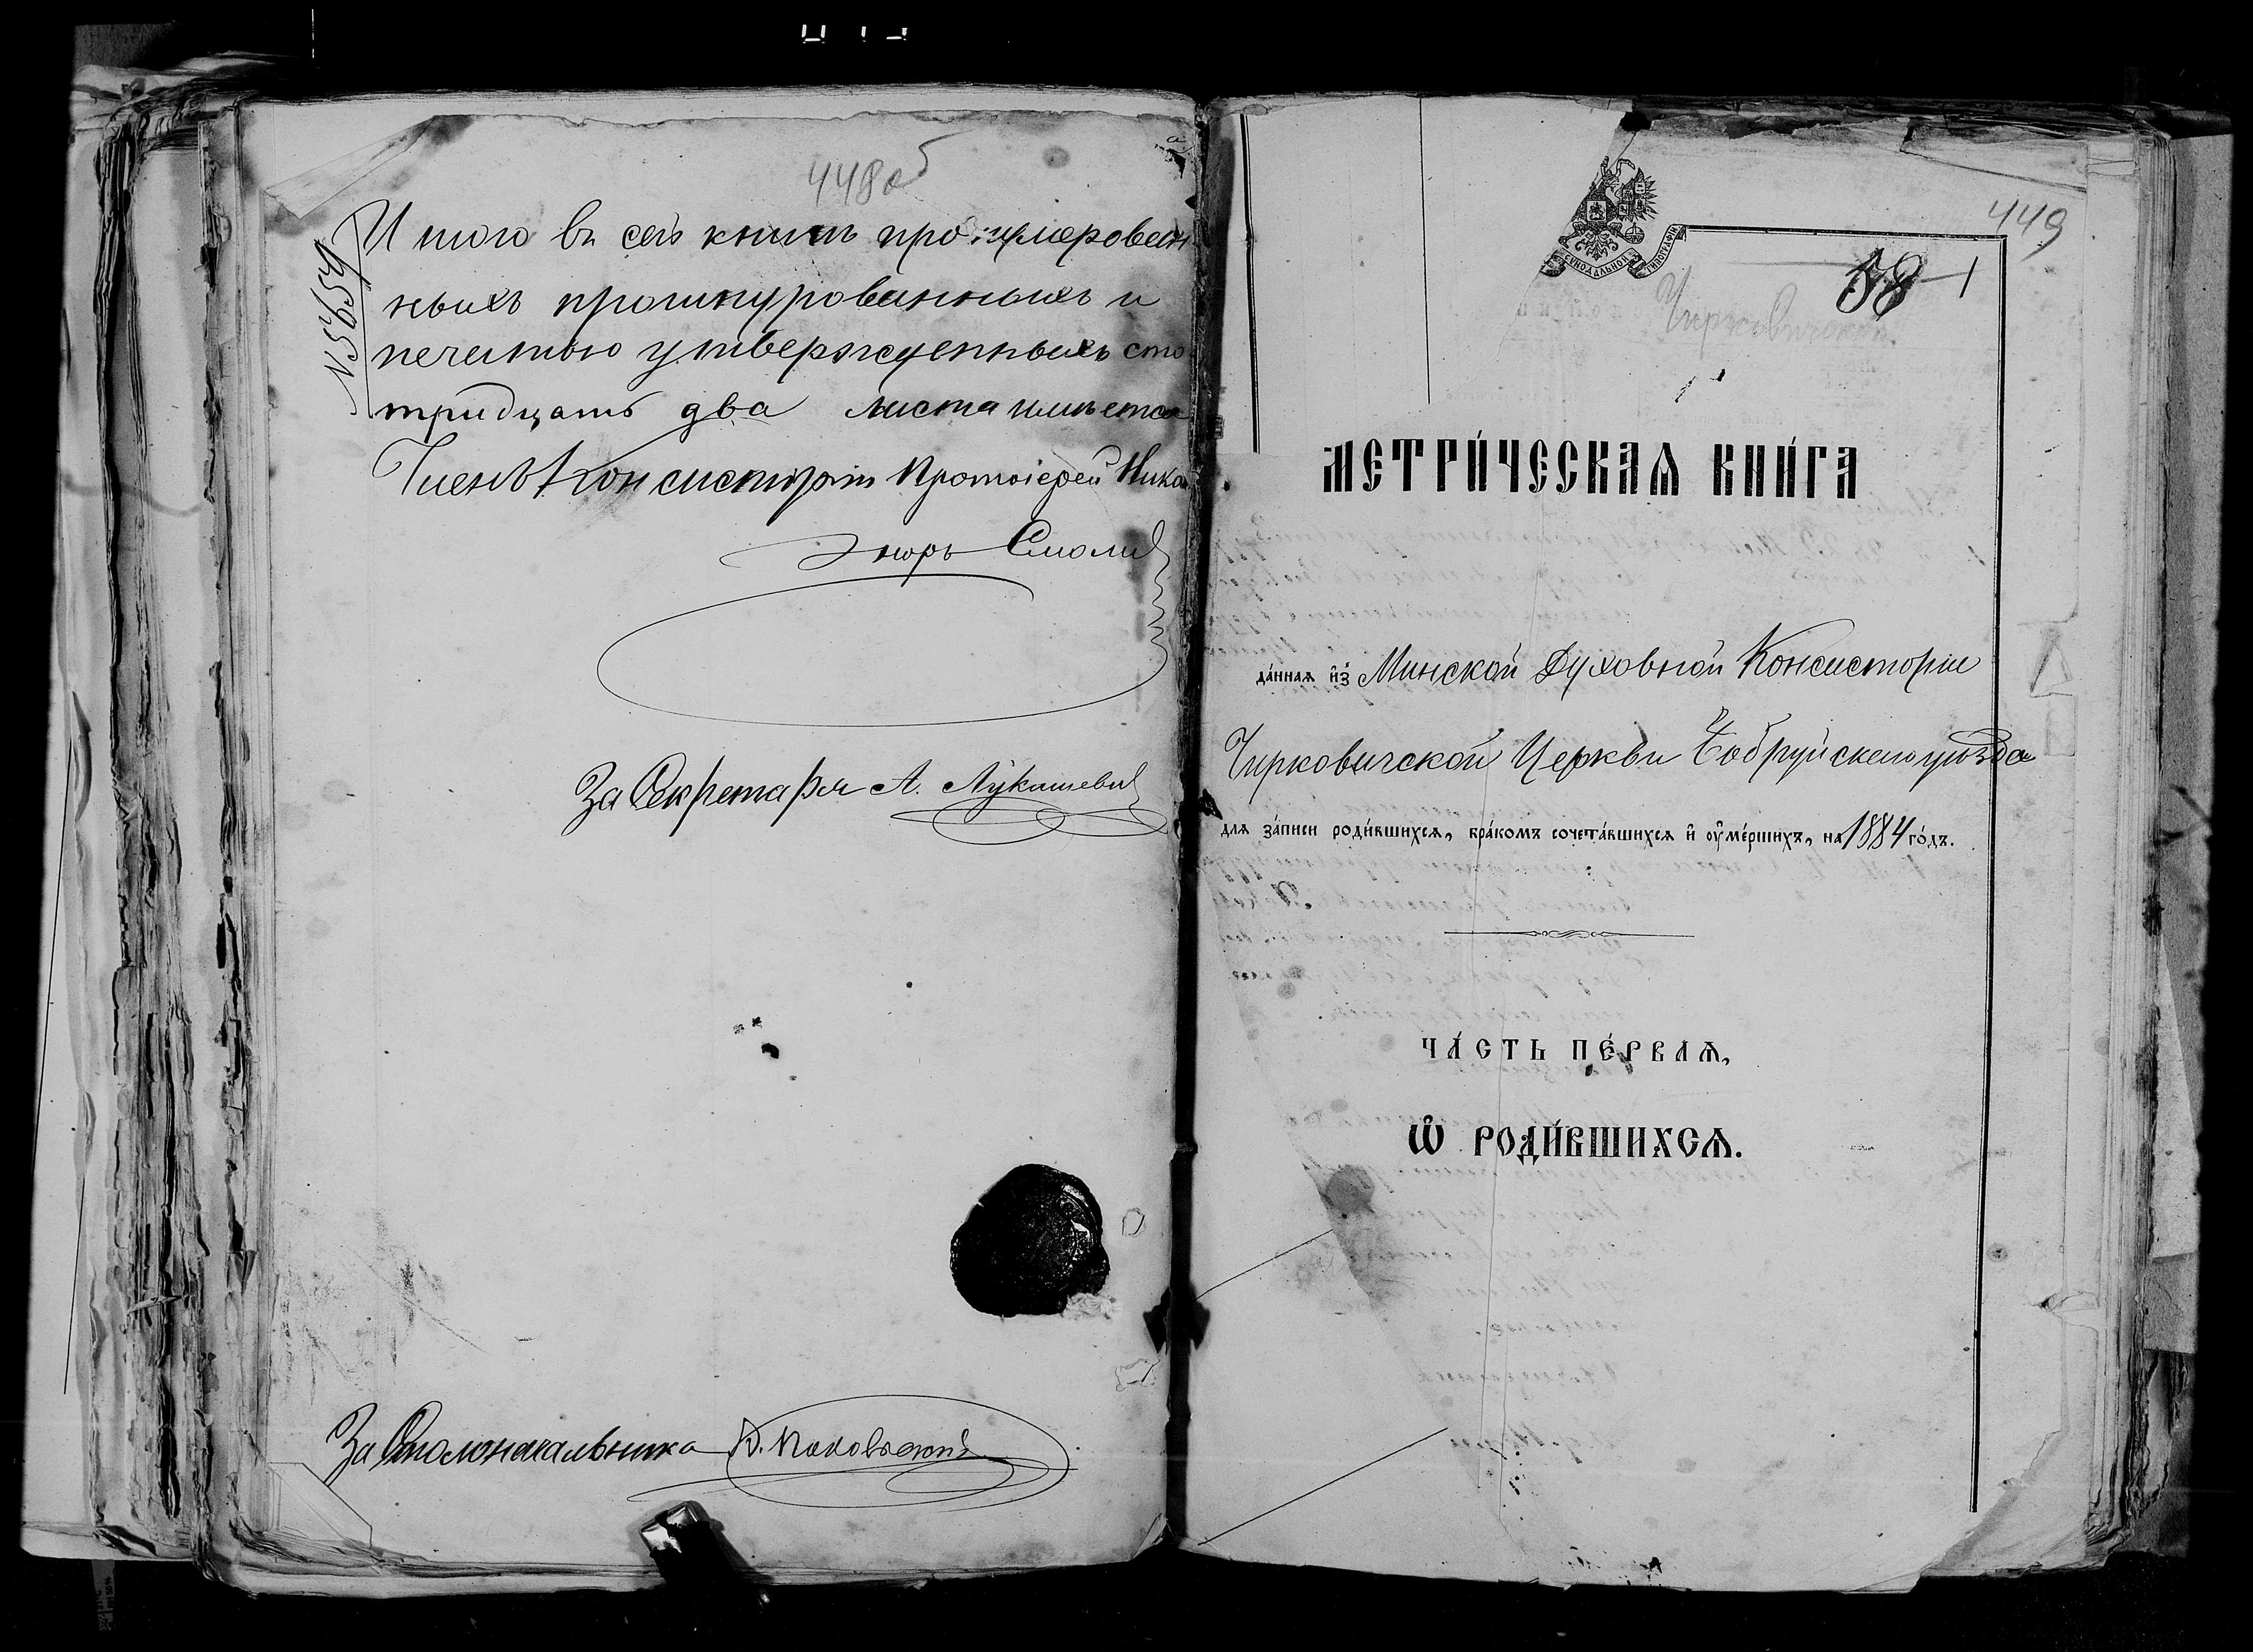 448об
№5654
Итого въ сей книгѣ пронумерован
ныхъ прошнурованныхъ и
печатью утвержденныхъ сто
тридцать два листа имѣется
Членъ Консисторіи Протоіерей Ника
норъ Смолич
За Секретаря А. Лукашевич
За Столоначальника
449
58 1
СУНОДАЛЬНОЙ ТИПОГРАФІИ
Чирковичской
МЕТРИ́ЧЕСКАѦ КНИ́ГА
да́ннаѧ и҆з̾ Минской Духовной Консисторіи
Чирковичской Церкви Бобруйскаго уѣзда
для за́писи роди́вшихсѧ, бра́комъ сочета́вшихсѧ и҆ ᲂу҆ме́ршихъ, на 1884 го́дъ.
ЧА́СТЬ ПЕ́РВАѦ,
Ѡ҆ РОДИ́ВШИХСѦ.